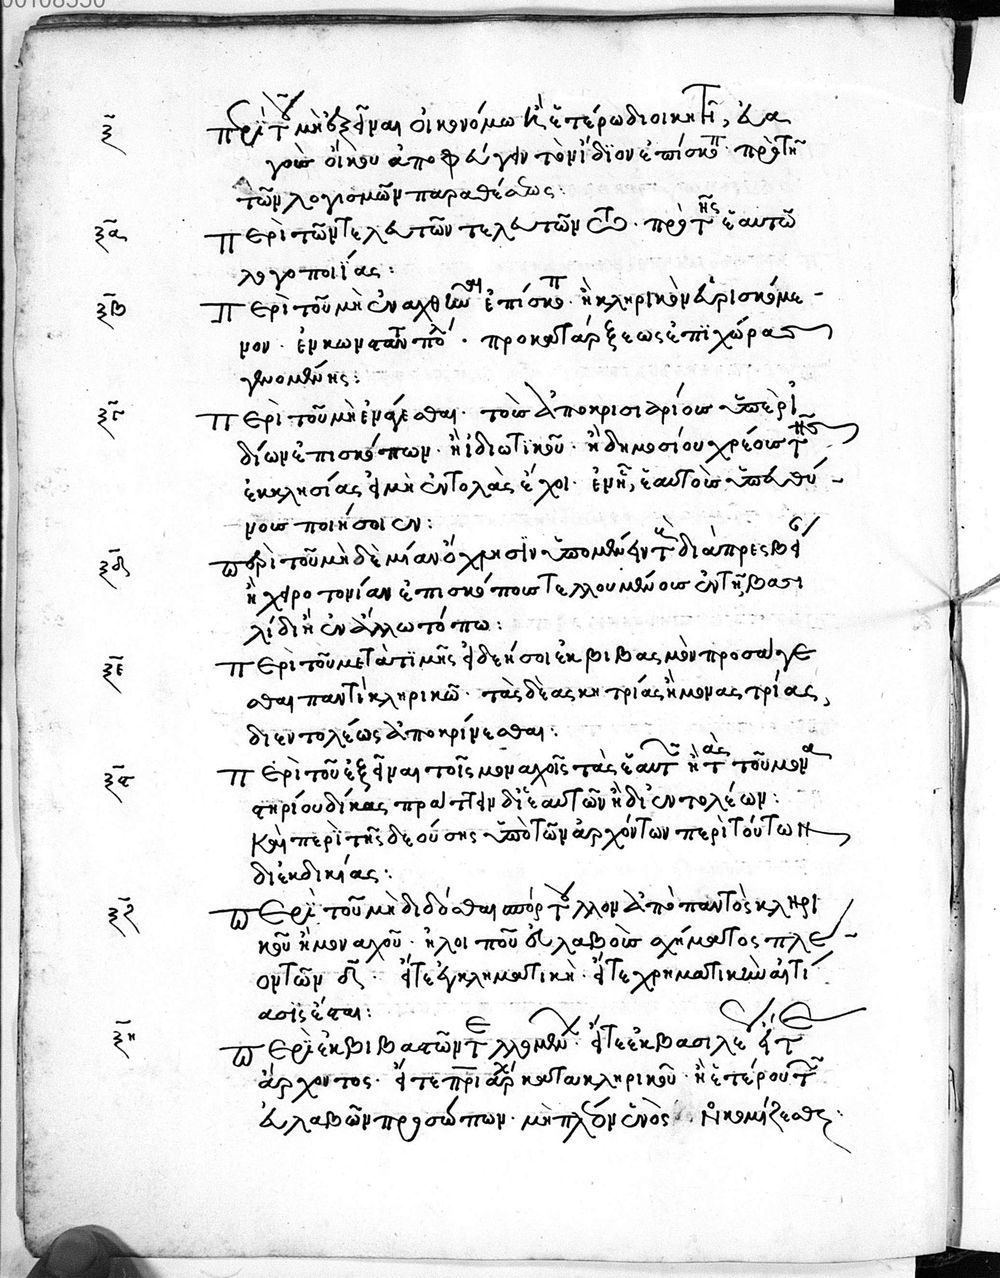 00108550
ξ Περὶ τοῦ μὴ ἐξεῖναι οἰκονόμω ἢ ἑτέρω διοικητῆ, εὐα
γοῦς οἴκου ἀποφεύγειν τὸν ἴδιον ἐπίσκοπ πρὸ τῆς
τῶν λογισμῶν παραθέσεως·
ξα Περὶ τῶν τελευτῶντων πρὸ τῆς ἑαυτῶ
λογοποιΐας:
ξβ Περὶ τοῦ μὴ ἐναχθῆναι ἐπίσκοπ· ἢ κληρικὸν εὑρισκόμε-
νον· ἐν κωνσταντπόλ· προκατάρξεως ἐπὶ χώρας
γενομένης:
ξγ Περὶ τοῦ μὴ ἐνάγεσθαι· τοὺς ἀποκρισιαρίους ὑπὲρ ἰ
δίων ἐπισκόπων· ἢ ἰδιωτικοῦ· ἢ δημοσίου χρέους τῆς
ἐκκλησίας εἰ μὴ ἐντολὰς ἔχοι· ἑαυτοὺς ὑπευθύ-
νους ποιήσοιεν:
ξδ Περὶ τοῦ μὴ δεμίαν ὄχλησιν ὑπομένειν τοὺς διὰ πρεσβεί
ἢ χειροτονίαν ἐπισκόπους τελλουμένους ἐν τῆ βασι
λίδι ἢ ἐν ἄλλω τόπω:
ξε Περὶ τοῦ μετὰ τιμῆς εἰ δεήσοι ἐκβιβασμὸν προσάγε
σθαι παντὶ κληρικῶ· τὰς δὲ ἀσκητρίας ἢ μοναστρίας,
δι ἐντολέως ἀποκρίνεσθαι:
ξϛ Περὶ τοῦ ἐξεῖναι τοῖς μοναχοῖς τὰς ἑαυτῶν ἢ τὰς τοῦ μονα
στηρίου δίκας πράττειν δι ἑαυτῶν ἢ δι ἐντολέων:
Καὶ περὶ τῆς δεούσης ὑπὸ τῶν ἀρχόντων περὶ τούτων
διεκδικίας:
ξζ Περὶ τοῦ μὴ δίδοσθαι ὑπὲρ τέλλον ἀπὸ παντὸς κληρι
κοῦ ἢ μοναχοῦ· ἢ λοιποῦ εὐλαβοῦς σχήματος πλέ-
ον τῶν δ· εἴτε ἐγκληματικὴ· εἴτε χρηματικὴ ἡ αἰτί
ασις ἔσται:
ξη Περὶ ἐκβιβαστῶν τελλομέν· εἴτε ἐκ βασιλέ εἴτε
ἄρχοντος· εἴτε πριάρχ κατα κληρικοῦ· ἢ ἑτέρου τῶν
εὐλαβῶν προσώπων· μὴ πλέον ἑνὸς νομίζεσθαι: